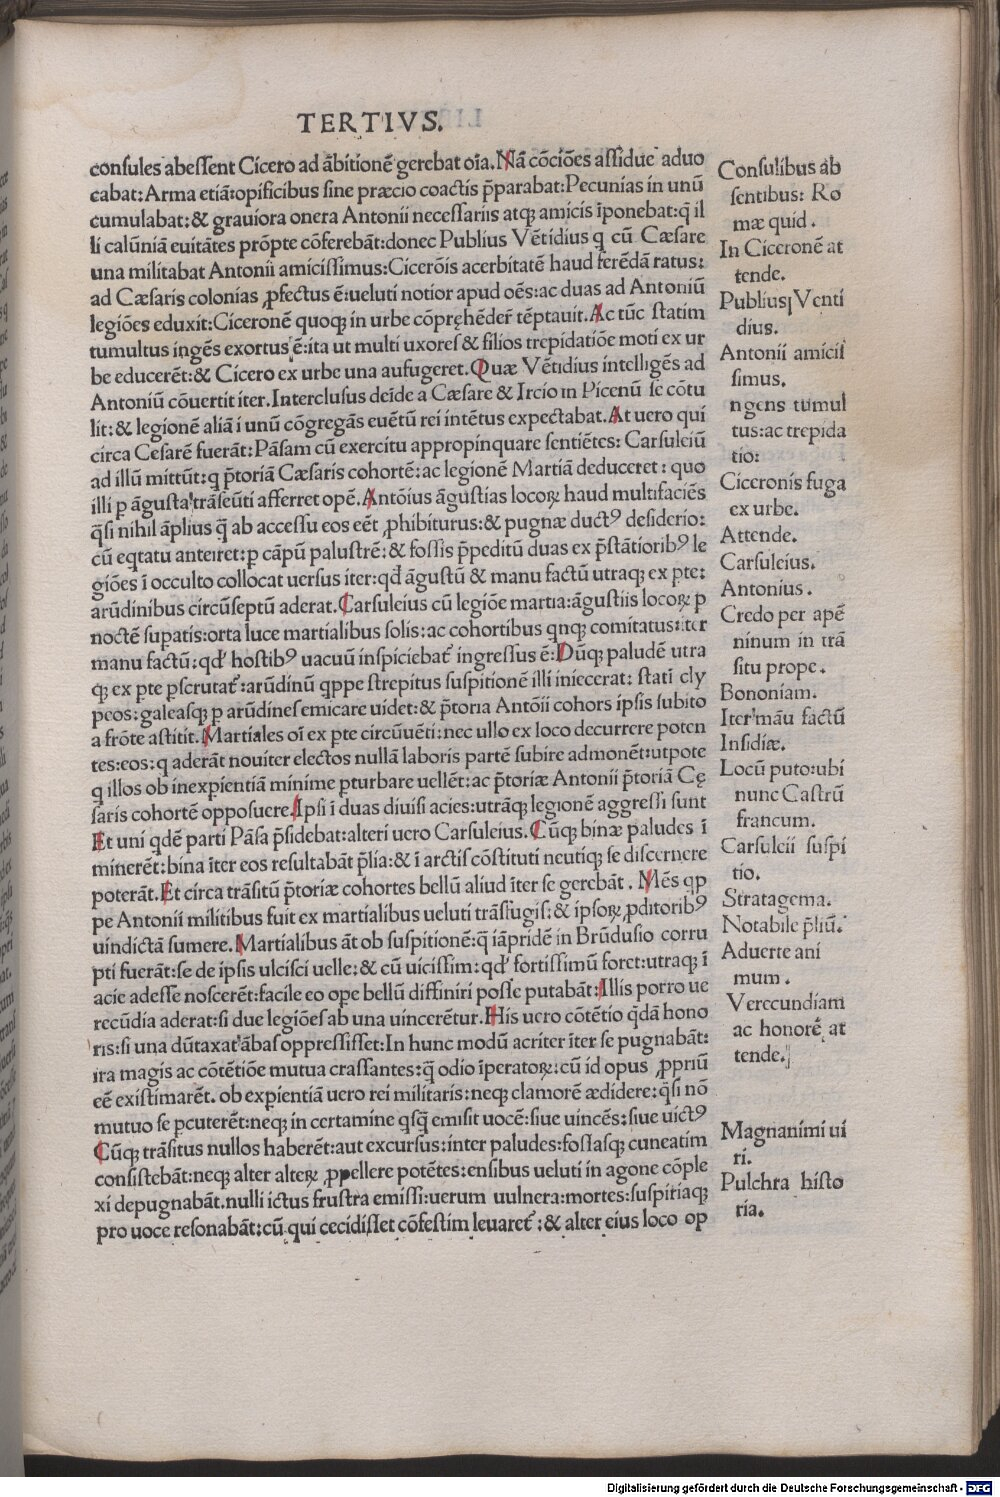 TERTIVS.
conſules abeſſent Cicero ad ãbitionẽ gerebat oĩa. Nã cõciões aſſidue aduo
cabat: Arma etiã: opificibus ſine præcio coactis p̃parabat: Pecunias in unũ
cumulabat: & grauiora onera Antonii neceſſariis atqꝫ amicis ĩponebat: q̃ il
li calũniã euitãtes prõpte cõferebãt: donec Publius Vẽtidius q cũ Cæſare
una militabat Antonii amiciſſimus: Cicerõis acerbitatẽ haud ferẽdã ratus:
ad Cæſaris colonias ꝓfectus ẽ: ueluti notior apud oẽs: ac duas ad Antoniũ
legiões eduxit: Ciceronẽ quoqꝫ in urbe cõpręhẽder̃ tẽptauit. Ac tũc ſtatim
tumultus ingẽs exortus ẽ: ita ut multi uxores & filios trepidatiõe moti ex ur
be educerẽt: & Cicero ex urbe una aufugeret. Quæ Vẽtidius intelligẽs ad
Antoniũ cõuertit iter. Intercluſus deĩde a Cæſare & Ircio in Picenũ ſe cõtu
lit: & legionẽ aliã ĩ unũ cõgregãs euẽtũ rei intẽtus expectabat. At uero qui
circa Ceſarẽ fuerãt: Pãſam cũ exercitu appropinquare ſentiẽtes: Carſuleiũ
ad illũ mittũt: q p̃toriã Cæſaris cohortẽ: ac legionẽ Martiã deduceret: quo
illi p ãguſta trãſeũti afferret opẽ. Antõius ãguſtias locoꝝ haud multifaciẽs
q̃ſi nihil ãplius q̃ ab acceſſu eos eẽt ꝓhibiturus: & pugnæ ductꝰ deſiderio:
cũ eqtatu anteiret: p cãpũ paluſtrẽ: & foſſis p̃peditũ duas ex p̃ſtãtioribꝰ le
giões ĩ occulto collocat uerſus iter: qđ ãguſtũ & manu factũ utraqꝫ ex pte:
arũdinibus circũſeptũ aderat. Carſuleius cũ legiõe martia: ãguſtiis locoꝝ p
noctẽ ſupatis: orta luce martialibus ſolis: ac cohortibus qnqꝫ comitatus: iter
manu factũ: qđ hoſtibꝰ uacuũ inſpiciebat̃ ingreſſus ẽ: Dũqꝫ paludẽ utra
qꝫ ex pte pſcrutat̃: arũdinũ qppe ſtrepitus ſuſpitionẽ illi iniecerat: ſtatĩ cly
peos: galeaſqꝫ p arũdines emicare uidet: & p̃toria Antõii cohors ipſis ſubito
a frõte aſtitit. Martiales oĩ ex pte circũuẽti: nec ullo ex loco decurrere poten
tes: eos: q aderãt nouiter electos nullã laboris partẽ ſubire admonẽt: utpote
q illos ob inexpientiã minime pturbare uellẽt: ac p̃toriæ Antonii p̃toriã Cę
ſaris cohortẽ oppoſuere. Ipſi ĩ duas diuiſi acies: utrãqꝫ legionẽ aggreſſi ſunt
Et uni qdẽ parti Pãſa p̃ſidebat: alteri uero Carſuleius. Cũqꝫ binæ paludes ĩ
minerẽt: bina ĩter eos reſultabãt p̃lia: & ĩ arctis cõſtituti neutiqꝫ ſe diſcernere
poterãt. Et circa trãſitũ p̃toriæ cohortes bellũ aliud ĩter ſe gerebãt. Mẽs qp
pe Antonii militibus fuit ex martialibus ueluti trãſiugis: & ipſoꝝ ꝓditoribꝰ
uindictã ſumere. Martialibus ãt ob ſuſpitionẽ: q̃ iãpridẽ in Brũduſio corru
pti fuerãt: ſe de ipſis ulciſci uelle: & cũ uiciſſim: qđ fortiſſimũ foret: utraqꝫ ĩ
acie adeſſe noſcerẽt: facile eo ope bellũ diffiniri poſſe putabãt: Illis porro ue
recũdia aderat: ſi due legiões ab una uincerẽtur. His uero cõtẽtio q̃dã hono
ris: ſi una dũtaxat ãbas oppreſſiſſet: In hunc modũ acriter ĩter ſe pugnabãt:
ira magis ac cõtẽtiõe mutua craſſantes: q̃ odio ĩperatoꝝ: cũ id opus ꝓpriũ
eẽ exiſtimarẽt. ob expientiã uero rei militaris: neqꝫ clamorẽ ædidere: q̃ſi nõ
mutuo ſe pcuterẽt: neqꝫ in certamine qſq̃ emiſit uocẽ: ſiue uincẽs: ſiue uictꝰ
Cũqꝫ trãſitus nullos haberẽt: aut excurſus: inter paludes: foſſaſqꝫ cuneatim
conſiſtebãt: neqꝫ alter alteꝝ ꝓpellere potẽtes: enſibus ueluti in agone cõple
xi depugnabãt. nulli ictus fruſtra emiſſi: uerum uulnera: mortes: ſuſpitiaqꝫ
pro uoce reſonabãt: cũ qui cecidiſſet cõfeſtim leuaret̃: & alter eius loco op
Conſulibus ab
ſentibus: Ro
mæ quid.
In Ciceronẽ at
tende.
Publius Venti
dius.
Antonii amiciſ
ſimus.
ngens tumul
tus: ac trepida
tio:
Ciceronis fuga
ex urbe.
Attende.
Carſuleius.
Antonius.
Credo per apẽ
ninum in trã
ſitu prope.
Bononiam.
Iter mãu factũ
Inſidiæ.
Locũ puto: ubi
nunc Caſtrũ
francum.
Carſuleii ſuſpi
tio.
Stratagema.
Notabile p̃liũ.
Aduerte ani
mum.
Verecundiam
ac honorẽ at
tende.
Magnanimi ui
ri.
Pulchra hiſto
ria.
Digitalisierung gefördert durch die Deutsche Forschungsgemeinschaft - DFG